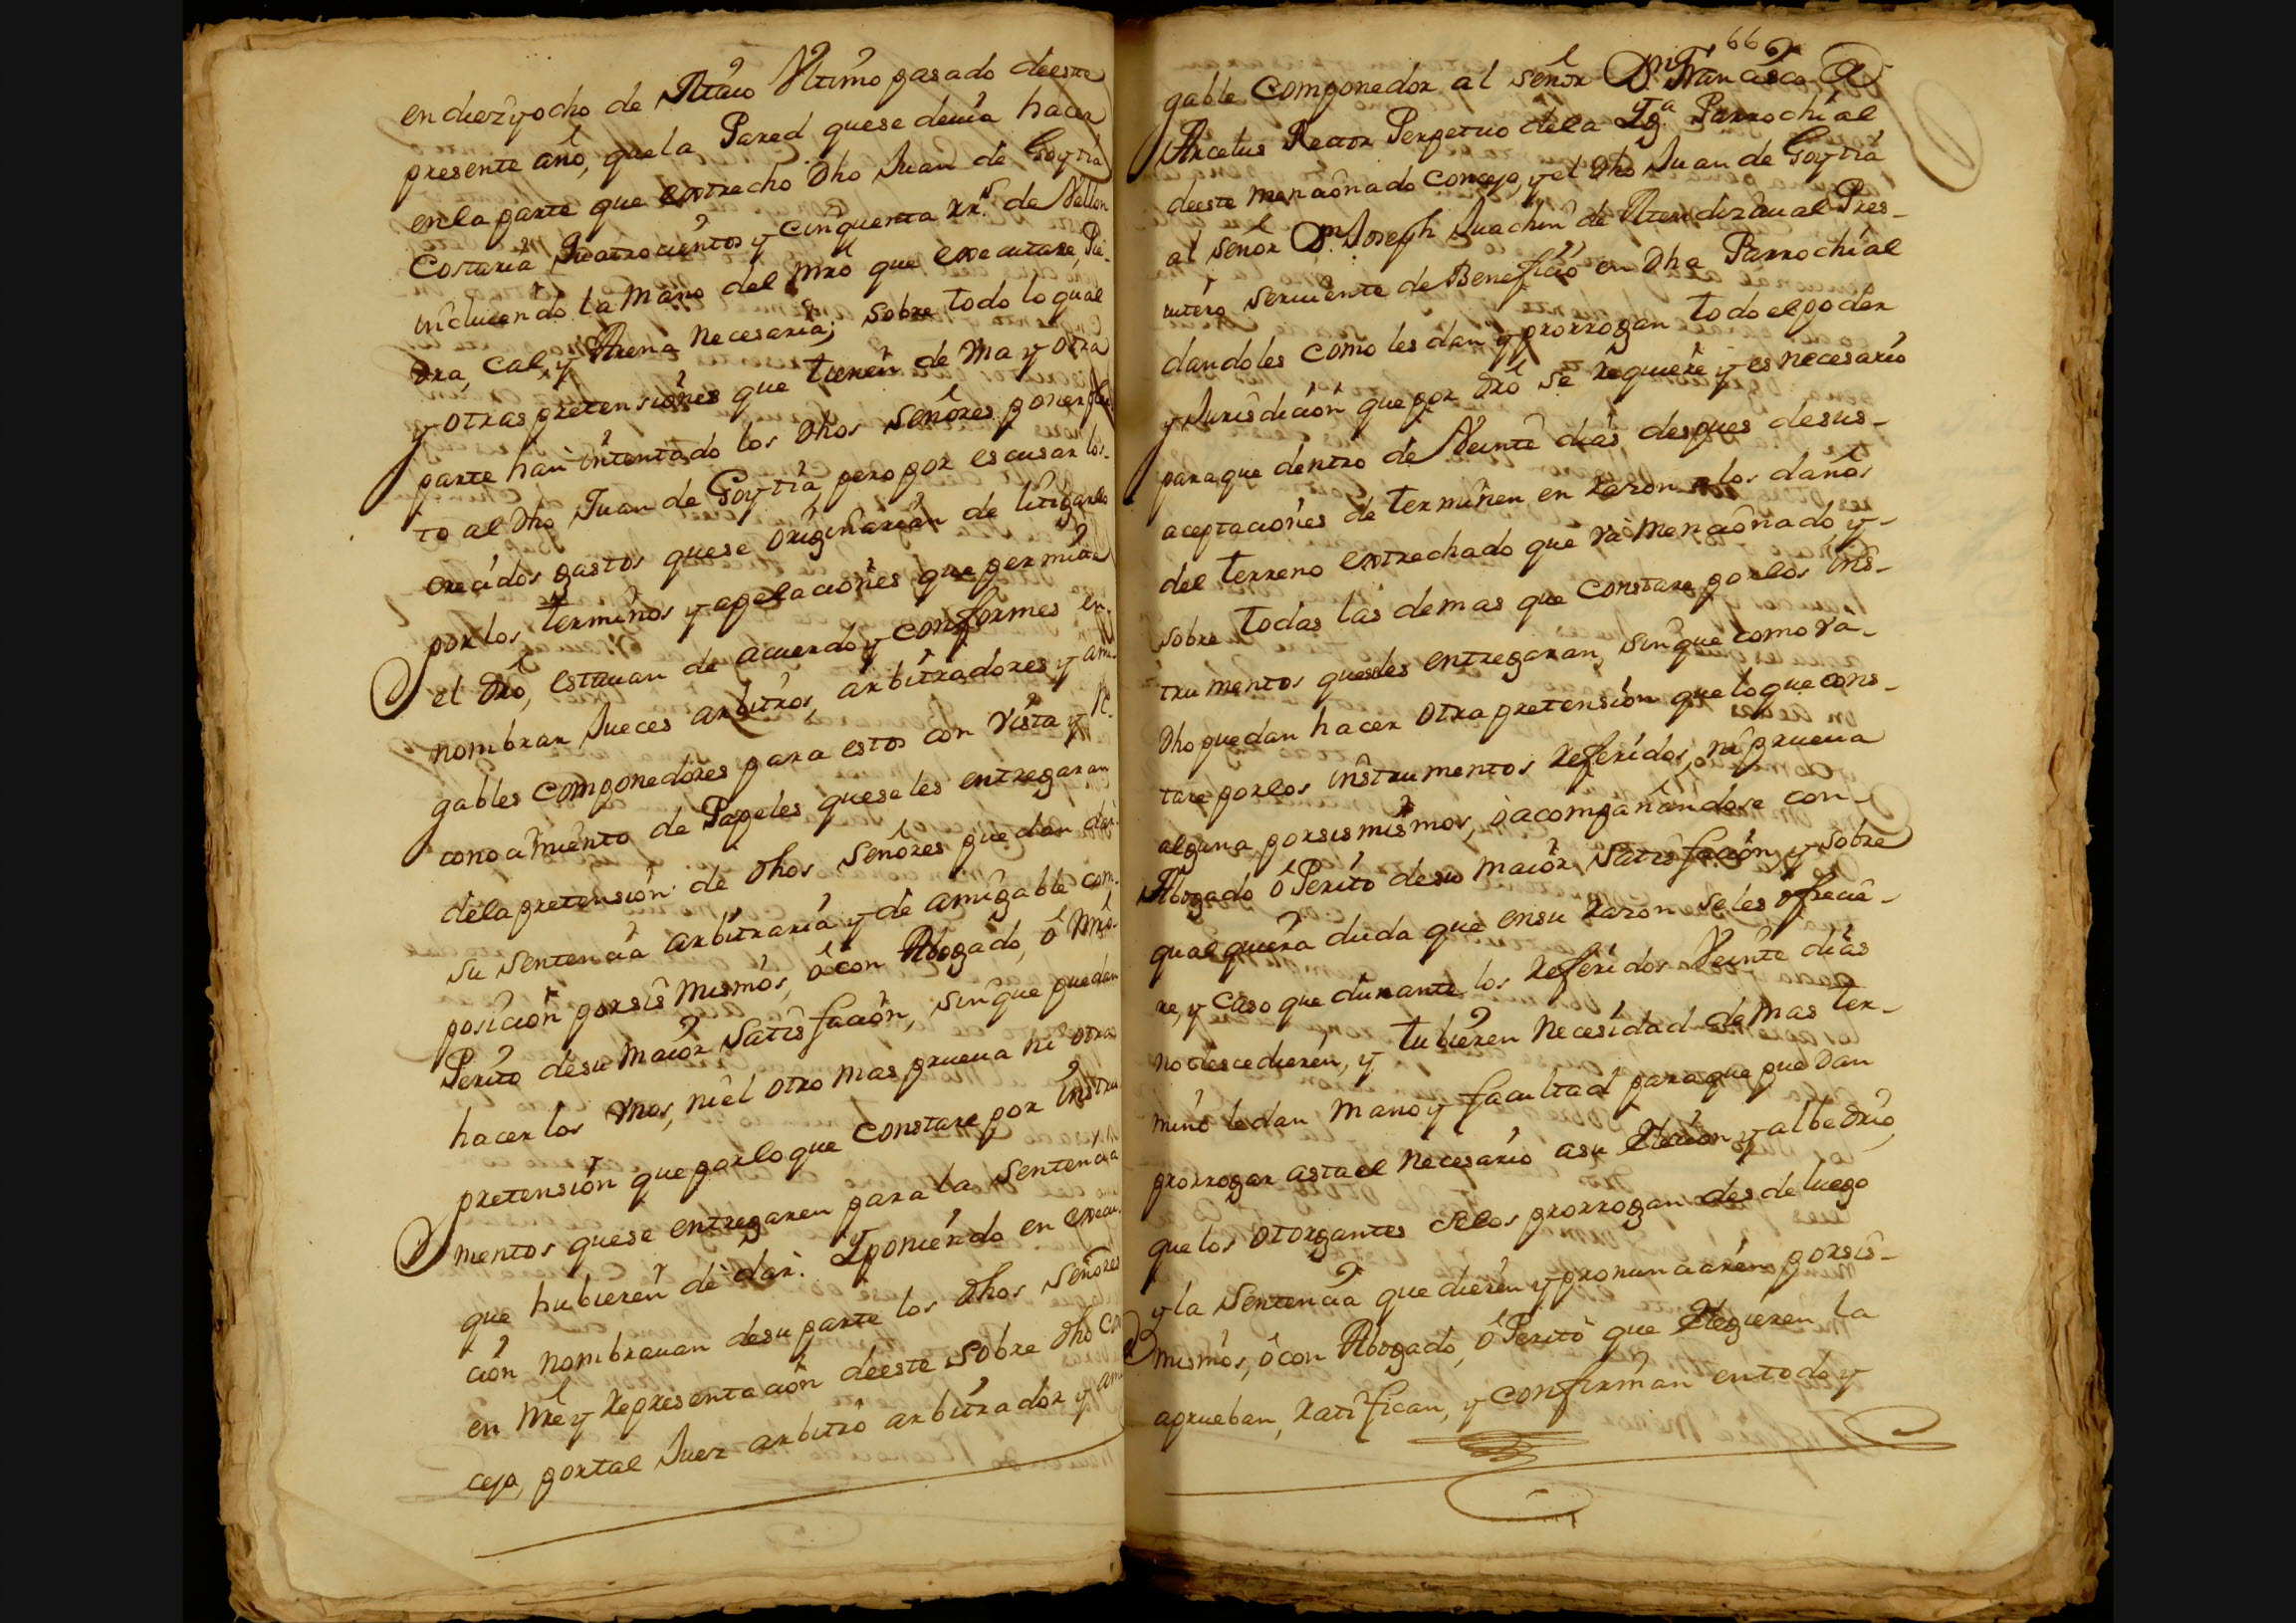 en diez y ocho de Maio Ultimo pasado deeste
presente año, que la Pared quese deuia hacer
en la parte que extrecho Dho Juan de Goytia
Costaria Quatrocientos y cinquenta rr.s de Vellon
incluiendo la Mano del Mro que executare, Pie-
dra, cal, y Arena necesaria; sobre todo lo qual
y otras pretensiones que tienen de Una y otra
parte han intentado los Dhos Señores poner Plei-
to al Dho Juan de Goytia, pero por escusar los
crecidos gastos quese originarian de litigarlo
por los terminos y apelaciones que permite
el Dro, estauan de acuerdo y conformes en
nombrar Jueces arbitros, arbitradores y ami-
gables componedores para estos con vista y re-
conocimiento de Papeles quese les entregaran
dela pretension de Dhos Señores puedan dar
su Sentencia arbitraria y de amigable com-
posicion porsis mismos, ô con Abogado, ô Mro
Perito desu maior Satisfacion, sin que puedan
hacer los Unos, ni el otro mas prueua ni otra
pretension que por lo que constare por instru
mentos quese entregaren para la Sentencia
que hubieren de dar. Y poniendo en execu-
cion nombrauan desu parte los Dhos Señores
en Nre y representacion deeste sobre Dho Con
cejo, por tal Juez arbitro arbitrador y ami
66
gable componedor al señor Dn Francisco de
Arcelus Rector Perpetuo dela Yg.a Parrochial
deeste mencionado Concejo, y el Dho Juan de Goytia
al señor Dn Joseph Juachin de Mendizaual Pres-
uitero seruiente de Beneficio en Dha Parrochial
dandoles como les dan y prorrogan todo el poder
y Jurisdicion que por Dro se requiere y es necesario
paraque dentro de Veinte dias, despues desus-
aceptaciones determinen en razon a los daños
del terreno extrechado que va mencionado y-
sobre todas las demas que constare por los ins-
trumentos queseles entregaran, sin que como va-
Dho puedan hacer otra pretension que lo que cons-
tare por los instrumentos referidos, ni prueua
alguna porsis mismos, ò acompañandose con-
Abogado ô Perito desu maior Satisfacion y sobre
qualquiera duda que ensu razon seles ofrecie-
re, y caso que durante los referidos Veinte dias
no descedieren, y tubieren necesidad de mas ter-
mino le dan mano y facultad paraque puedan
prorrogar asta el necesario asu elecion y albedrio,
que los otorgantes selos prorrogan desde luego
y la Sentencia que dieren y pronunciaren porsis-
mismos, ô con Abogado, ô Perito que eligieren la
aprueban, ratifican, y confirman en todo y